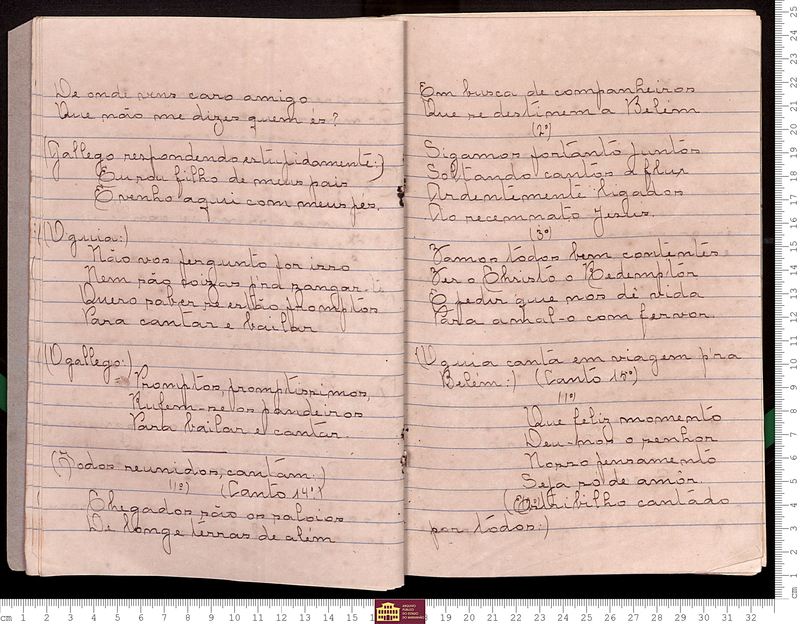 De onde vens caro amigo
Que não me dizes quem és?
(Gallego respondendo estupidamente:)
Eu sou filho de meus pais
E venho aqui com meus pés.
(O guia:)
Não vos pergunto por isso
Nem são coizas pra zangar-te
Quero saber se estão promptos
Para cantar e bailar
(O gallego:)
Promptos, promptissimos,
Rufem-se os pandeiros
Para bailar e cantar.
(Todos reunidos, cantam:)
(1º) (Canto 14º)
Chegados são os saloios
De longe térras de além
Em busca de companheiros
Que se destinem a Belém
(2º)
Sigamos portanto juntos
Soltando cantos a flux
Ardentemente ligados
Ao recemnato Jesus.
(3º)
Vamos todos bem contentes
Ver o Christo o Redemptôr
E pedir que nos dê vida
Para amal-o com fervor.
(O guia canta em viagem p'ra
Belém:) (Canto 15º)
(1º)
Que feliz momento
Deu-nos o senhor
Nosso pensamento
Seja só de amôr
(Estribilho cantado
por todos:)
ARQUIVO
PÚBLICO
DO ESTADO
DO MARANHÃO
cm 1 2 3 4 5 6 7 8 9 10 11 12 13 14 15 1 8 19 20 21 22 23 24 25 26 27 28 29 30 31 32
cm 1 2 3 4 5 6 7 8 9 10 11 12 13 14 15 16 17 18 19 20 21 22 23 24 25